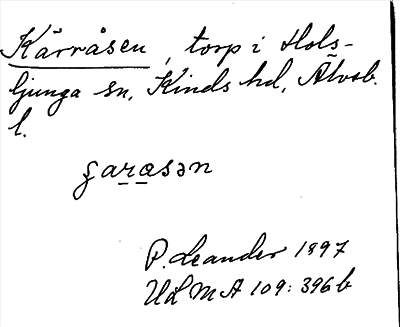 Kärråsen, torp i Hols-
ljunga sn, Kinds hd, Älvsb.
l.
ɕarasən
P. Leander 1897
ULMA 109: 396 b